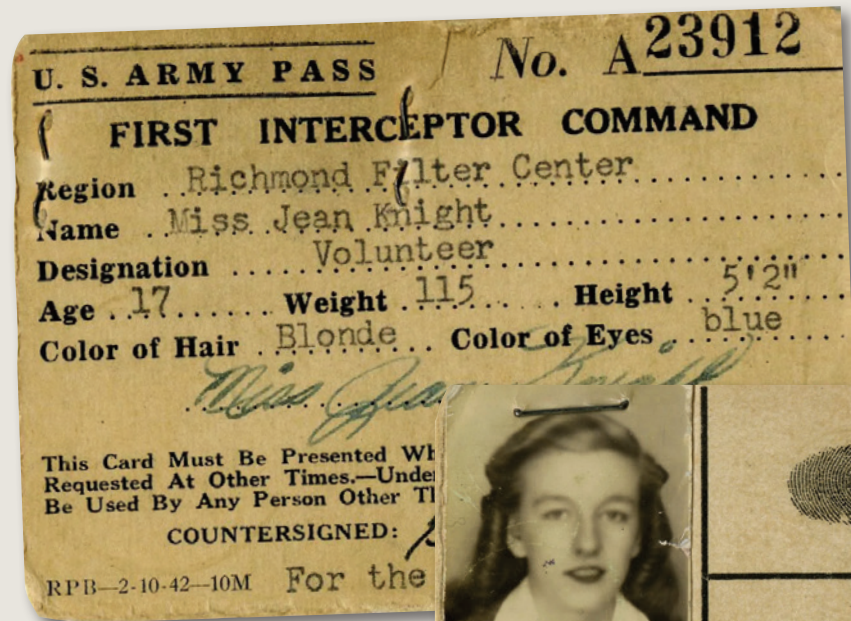 U. S. ARMY PASS No. A 23912
FIRST INTERCEPTOR COMMAND
Region Richmond Filter Center
Name Miss Jean Knight
Designation Volunteer
Age 17 Weight 115 Height 5'2"
Color of Hair Blonde Color of Eyes blue
Miss Jean Knight
This Card Must Be Presented Wh
Requested At Other Times.—Unde
Be Used By Any Person Other Th
COUNTERSIGNED:
RPB—2-10-42—10M For the